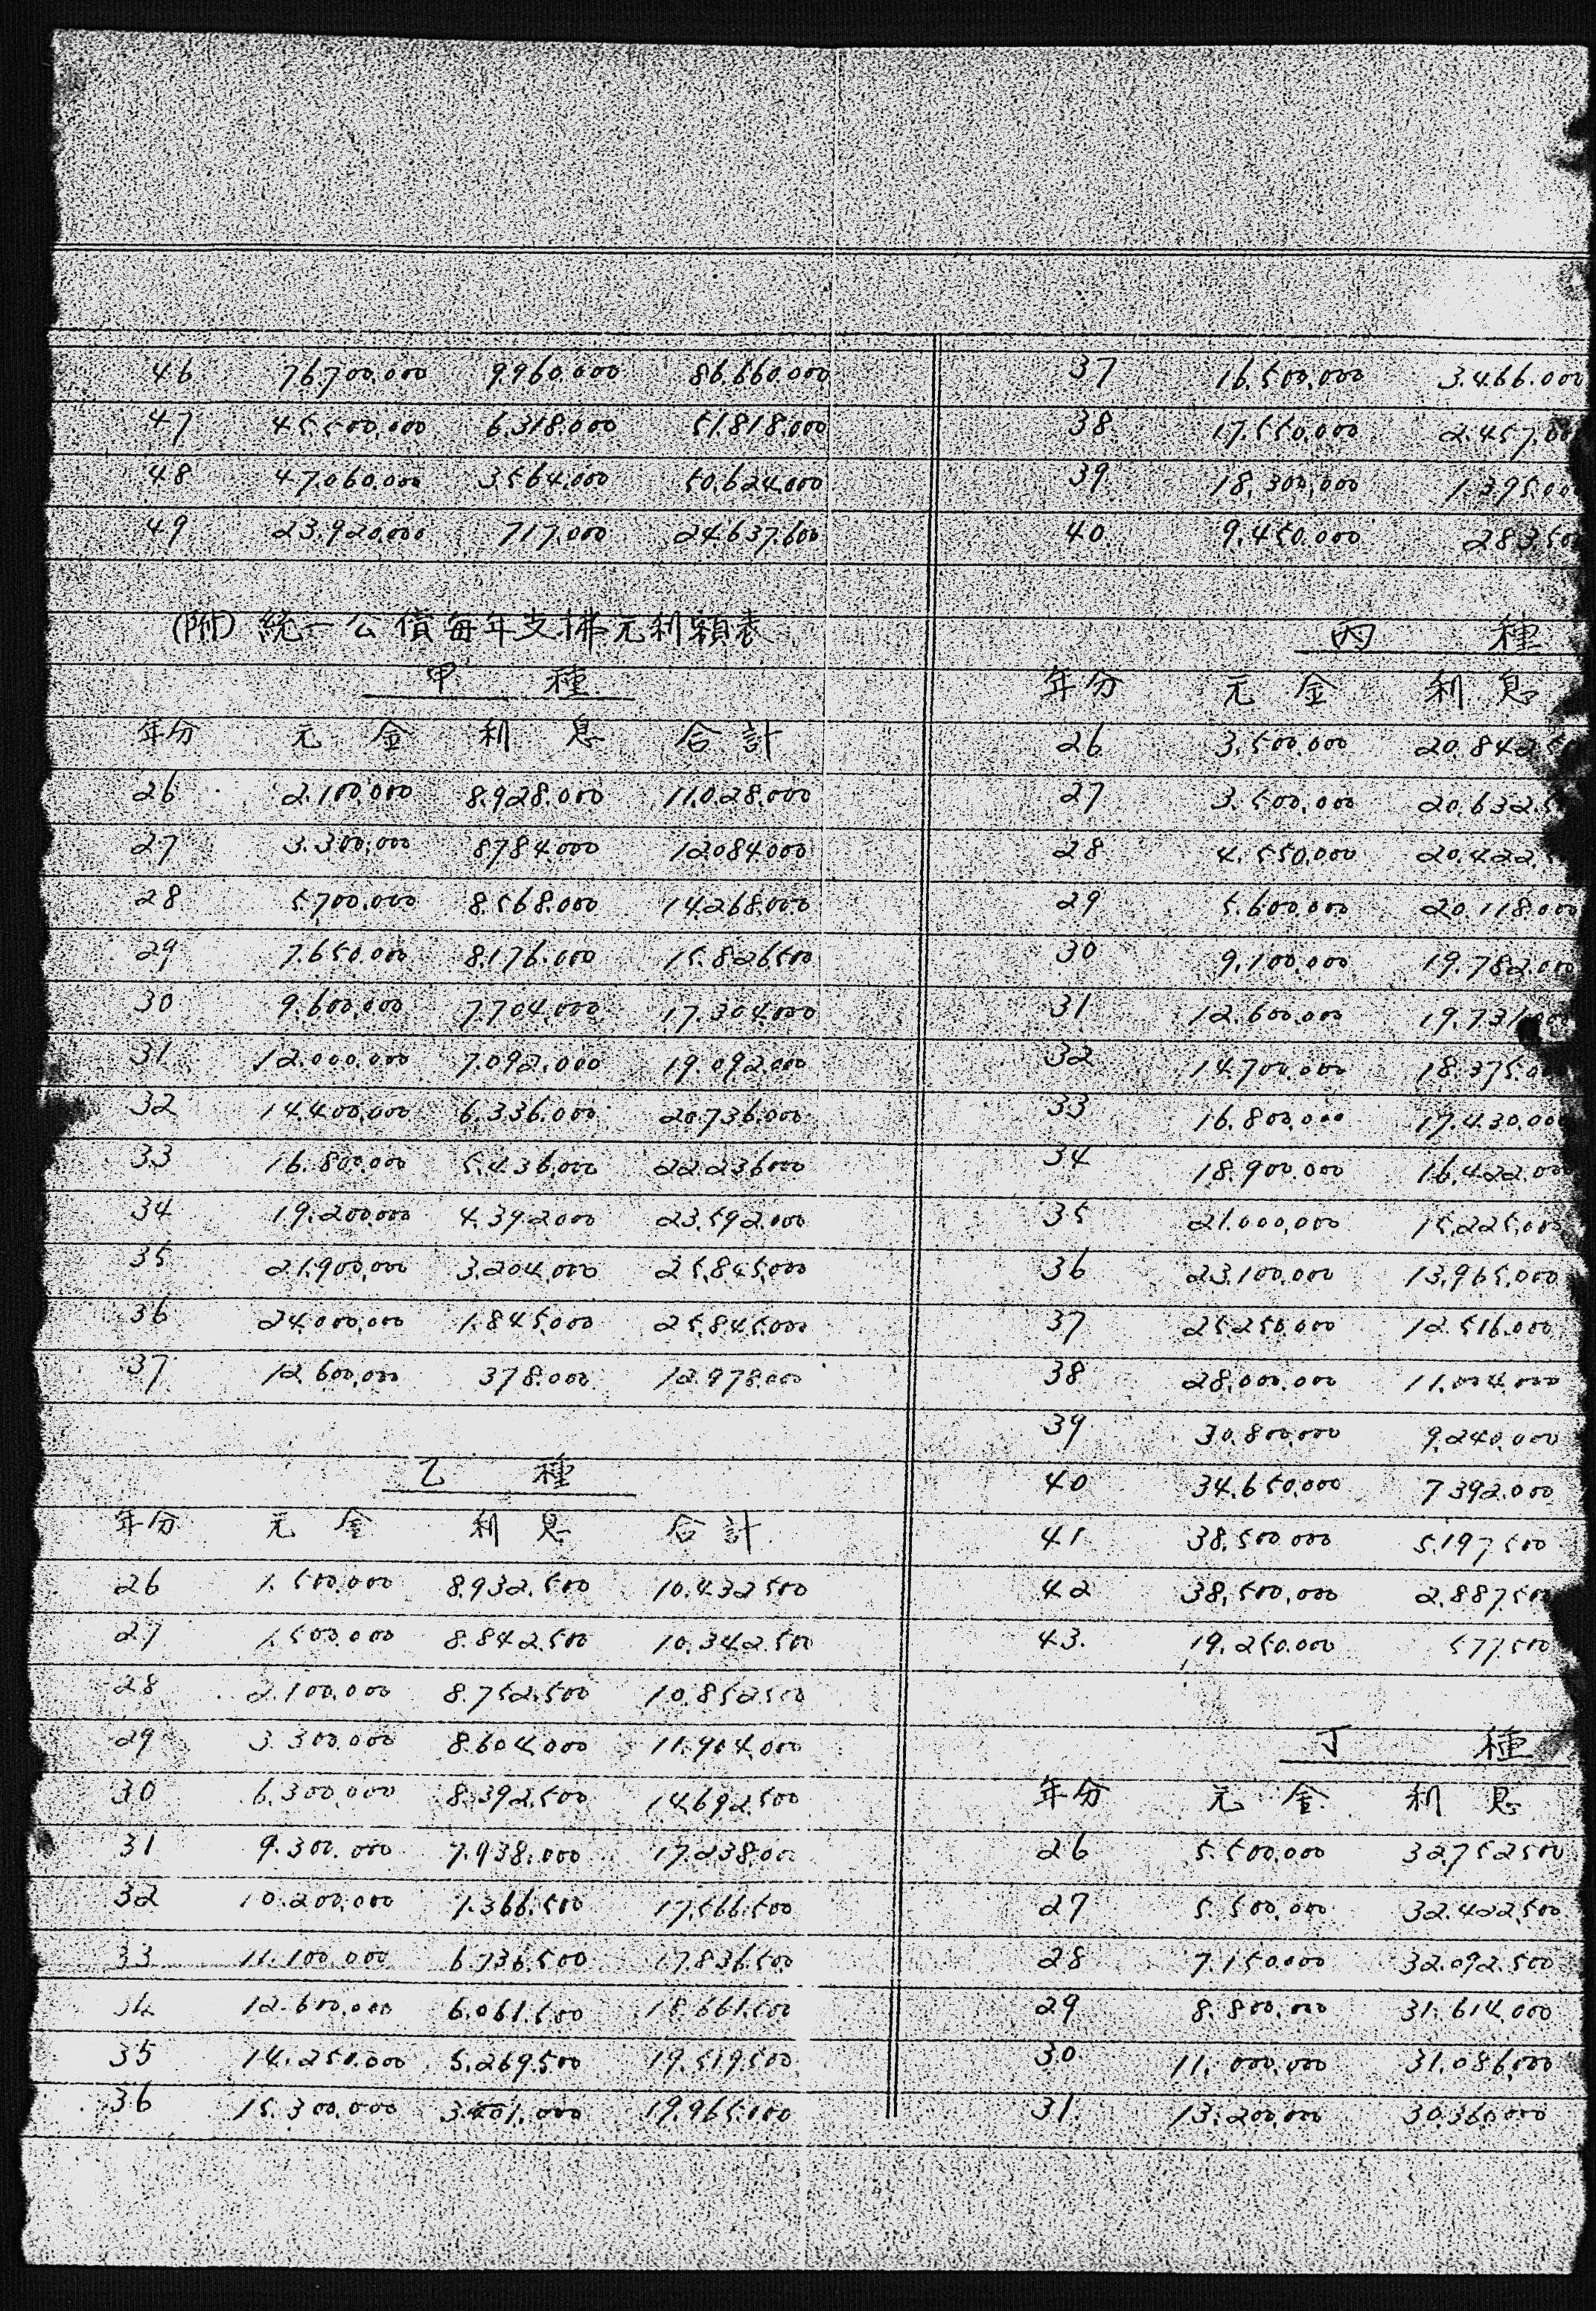 46 76.700.000 9.960.000 86.660.000
47 45.500.000 6.318.000 51.818.000
48 47.060.000 3.564.000 50.624.000
49 23.920.000 717.000 24.637.600
(附) 統一公債每年支拂元利額表
甲 種
年分 元 金 利 息 合 計
26 2.100.000 8.928.000 11.028.000
27 3.300.000 8.784.000 12.084.000
28 5.700.000 8.568.000 14.268.000
29 7.650.000 8.176.000 15.826.500
30 9.600.000 7.704.000 17.304.000
31 12.000.000 7.092.000 19.092.000
32 14.400.000 6.336.000 20.736.000
33 16.800.000 5.436.000 22.236.000
34 19.200.000 4.392.000 23.592.000
35 21.900.000 3.204.000 25.845.000
36 24.000.000 1.845.000 25.845.000
37 12.600.000 378.000 12.978.000
乙 種
年分 元 金 利 息 合 計
26 1.500.000 8.932.500 10.432.500
27 1.500.000 8.842.500 10.342.500
28 2.100.000 8.752.500 10.852.500
29 3.300.000 8.604.000 11.904.000
30 6.300.000 8.392.500 14.692.500
31 9.300.000 7.938.000 17.238.000
32 10.200.000 7.366.500 17.566.500
33 11.100.000 6.736.500 17.836.500
34 12.600.000 6.061.500 18.661.500
35 14.250.000 5.269.500 19.519.500
36 15.300.000 19.965.000
37 16.500.000 3.466.000
38 17.550.000 2.457.00
39 18.300.000 1.395.00
40 9.450.000 283.500
丙 種
年分 元 金 利 息
26 3.500.000 20.842.5
27 3.500.000 20.632.5
28 4.550.000 20.422.
29 5.600.000 20.118.000
30 9.100.000 19.782.000
31 12.600.000 19.731.000
32 14.700.000 18.375.0
33 16.800.000 17.430.000
34 18.900.000 16.422.000
35 21.000.000 15.225.000
36 23.100.000 13.965.000
37 25.250.000 12.516.000
38 28.000.000 11.004.000
39 30.800.000 9.240.000
40 34.650.000 7.392.000
41 38.500.000 5.197.500
42 38.500.000 2.887.500
43. 19.250.000 577.500
丁 種
年分 元 金 利 息
26 5.500.000 32.752.500
27 5.500.000 32.422.500
28 7.150.000 32.092.500
29 8.800.000 31.614.000
30 11.000.000 31.086.000
31 13.200.000 30.360.000